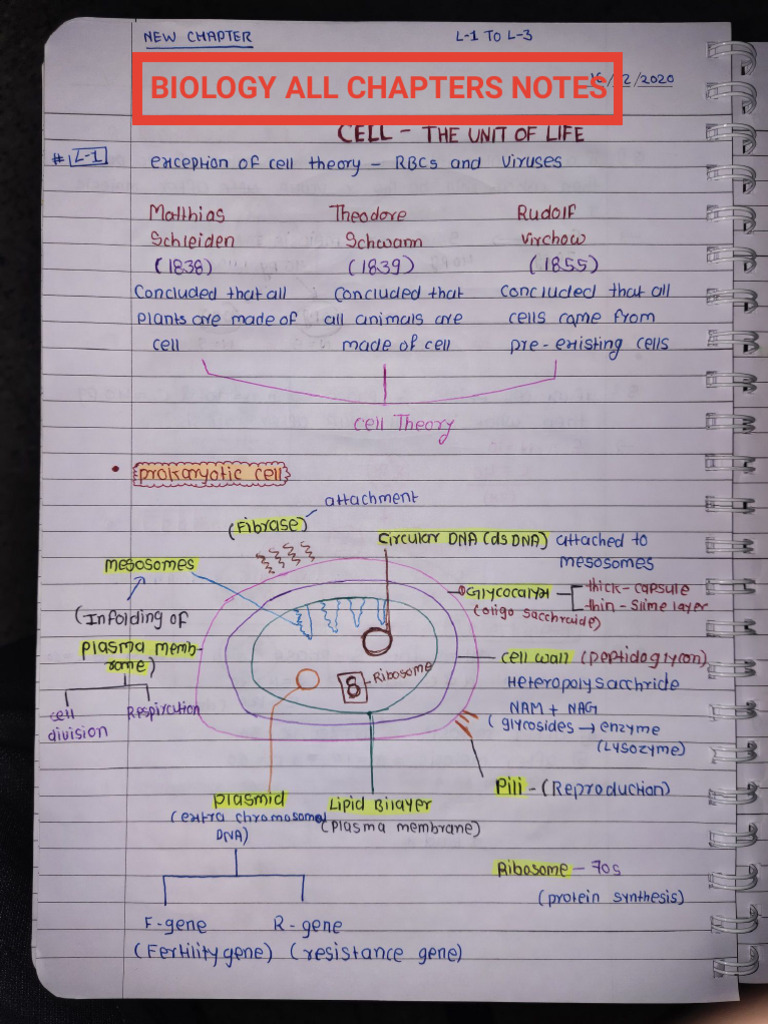 NEW CHAPTER
L-1 TO L-3
BIOLOGY ALL CHAPTERS NOTES
/2020
CELL - THE UNIT OF LIFE
# L-1
exception of cell theory - RBCs and Viruses
Matthias Theodore Rudolf
Schleiden Schwann Virchow
(1838) (1839) (1855)
Concluded that all Concluded that Concluded that all
plants are made of all animals are cells came from
cell made of cell pre-existing cells
Cell Theory
• prokaryotic cell
attachment
(Fibrase)
Circular DNA (ds DNA) attached to
mesosomes
mesosomes
Glycocalyx - thick - capsule
(oligo sacchraide) thin - slime layer
(Infolding of
plasma memb-
rane)
cell wall (peptidoglycon)
Ribosome
Heteropolysacchride
cell division
Respiration
NAM + NAG
(glycosides → enzyme
(Lysozyme)
Pili - (Reproduction)
plasmid
(extra chromosomal
DNA)
Lipid Bilayer
(plasma membrane)
Ribosome - 70s
(protein synthesis)
F-gene R-gene
(Fertility gene) (resistance gene)